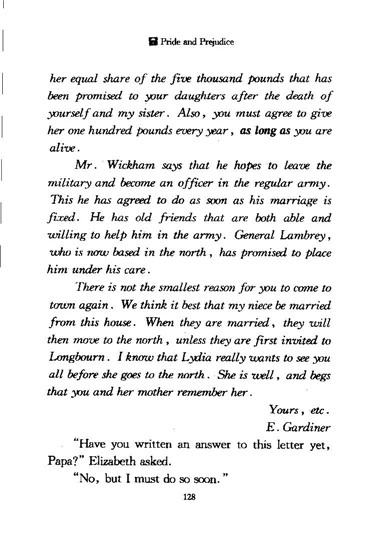 Pride and Prejudice
her equal share of the five thousand pounds that has
been promised to your daughters after the death of
yourself and my sister. Also, you must agree to give
her one hundred pounds every year, as long as you are
alive.
Mr. Wickham says that he hopes to leave the
military and become an officer in the regular army.
This he has agreed to do as soon as his marriage is
fixed. He has old friends that are both able and
willing to help him in the army. General Lambrey,
who is now based in the north, has promised to place
him under his care.
There is not the smallest reason for you to come to
town again. We think it best that my niece be married
from this house. When they are married, they will
then move to the north, unless they are first invited to
Longbourn. I know that Lydia really wants to see you
all before she goes to the north. She is well, and begs
that you and her mother remember her.
Yours, etc.
E. Gardiner
"Have you written an answer to this letter yet,
Papa?" Elizabeth asked.
"No, but I must do so soon."
128